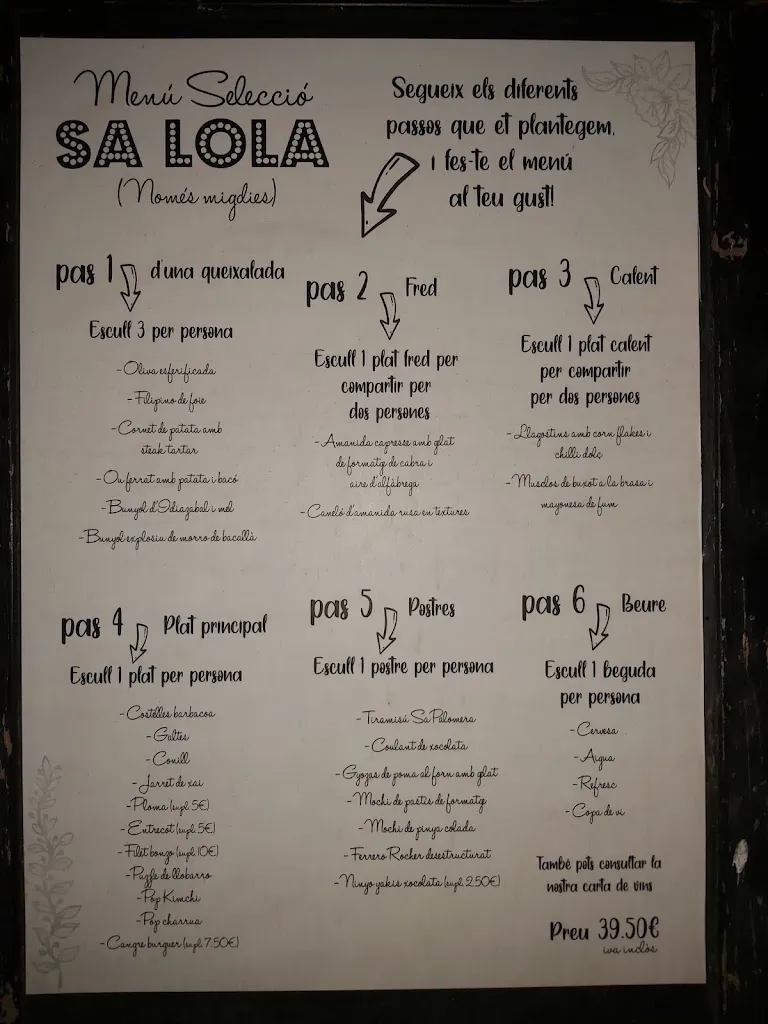 Menú Selecció
SA LOLA
(Només migdies)
Segueix els diferents
passos que et plantegem,
i fes-te el menú
al teu gust!
pas 1 d'una queixalada
Escull 3 per persona
- Oliva esferificada
- Filipino de foie
- Cornet de patata amb
steak tartar
- Ou ferrat amb patata i bacó
- Bunyol d'Idiazabal i mel
- Bunyol explosiu de morro de bacallà
pas 2 Fred
Escull 1 plat fred per
compartir per
dos persones
- Amanida capresse amb glat
de formatge de cabra i
aire d'alfàbrega
- Caneló d'amanida rusa en textures
pas 3 Calent
Escull 1 plat calent
per compartir
per dos persones
- Llagostins amb corn flakes i
chilli dolç
- Musclos de buxot a la brasa i
mayonesa de fum
pas 4 Plat principal
Escull 1 plat per persona
- Costelles barbacoa
- Galtes
- Conill
- Jarret de xai
- Ploma (supl. 5€)
- Entrecot (supl. 5€)
- Filet bonzo (supl. 10€)
- Puzfle de llobarro
- Pop Kimchi
- Pop charrua
- Cangre burguer (supl. 7.50€)
pas 5 Postres
Escull 1 postre per persona
- Tiramisú Sa Palomera
- Coulant de xocolata
- Gyozas de poma al forn amb glat
- Mochi de pastis de formatge
- Mochi de pinya colada
- Ferrero Rocher desestructurat
- Ninyo yakis xocolata (supl. 2.50€)
pas 6 Beure
Escull 1 beguda
per persona
- Cervesa
- Aigua
- Refresc
- Copa de vi
També pots consultar la
nostra carta de vins
Preu 39.50€
iva inclòs